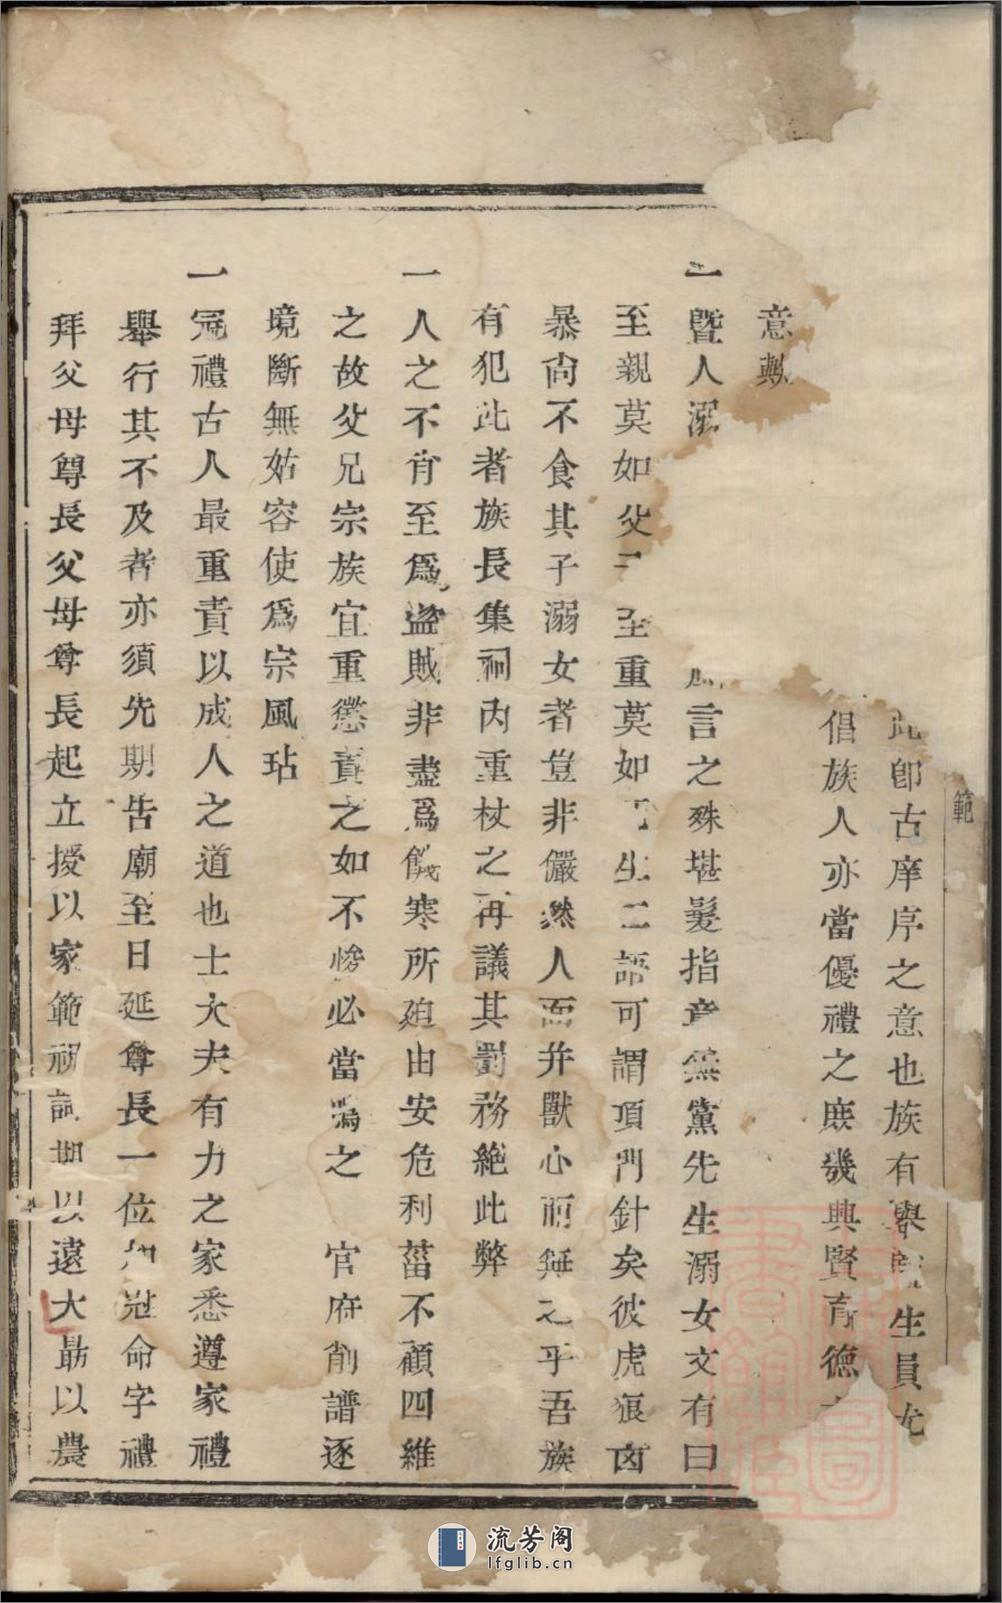 範
此卽古庠序之意也族有舉生員尤
倡族人亦當優禮之庶幾興賢育德
意歟
一曁人溺言之殊堪髮指黨先生溺女文有曰
至親莫如父至重莫如生二語可謂頂門針矣彼虎狼凶
暴尙不食其子溺女者豈非儼然人面并獸心而無之乎吾族
有犯此者族長集祠內重杖之再議其罰務絕此弊
一人之不肖至爲盜賊非盡爲饑寒所廹由安危利菑不顧四維
之故父兄宗族宜重懲責之如不悛必當鳴之官府削譜逐
境斷無姑容使爲宗風玷
一冠禮古人最重責以成人之道也士大夫有力之家悉遵家禮
舉行其不及者亦須先期告廟至日延尊長一位加冠命字禮
拜父母尊長父母尊長起立授以家範祝詞期以遠大勗以農
流芳阁
lfglib.cn